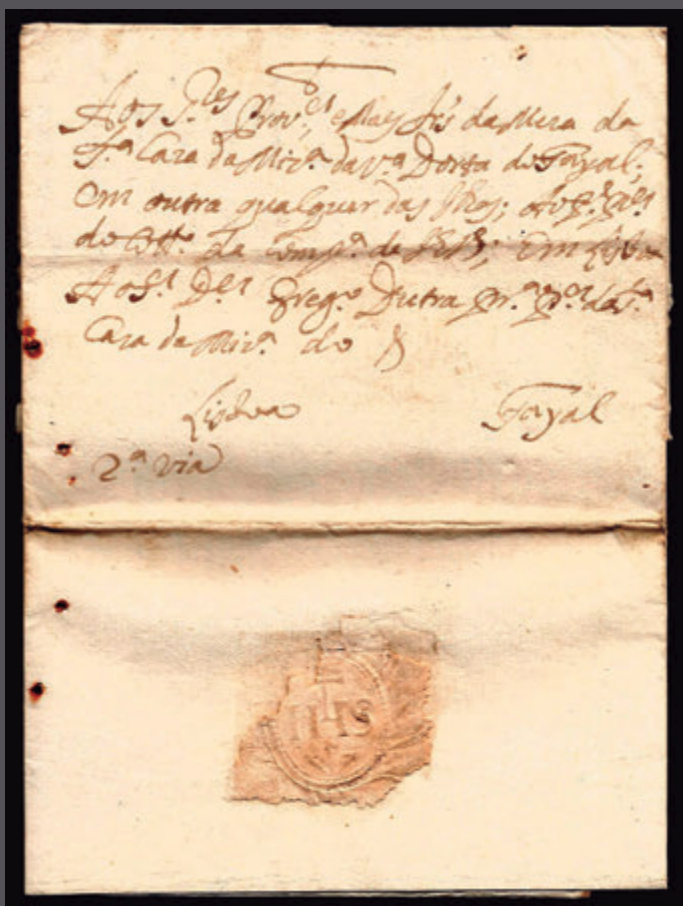 Aos S.res Prov.or e Mais Ir.s da Mesa da
S.ta Caza da Miz.a da V.a Dorta do Fayal;
Em outra qualquer das Ilhas;
do Coll.o da Comp.a de Em Lisboa
Ao S.r D.or Greg.o Dutra da S.ta
Caza da Miz.a do
Lisboa Fayal
2.a via
IHS